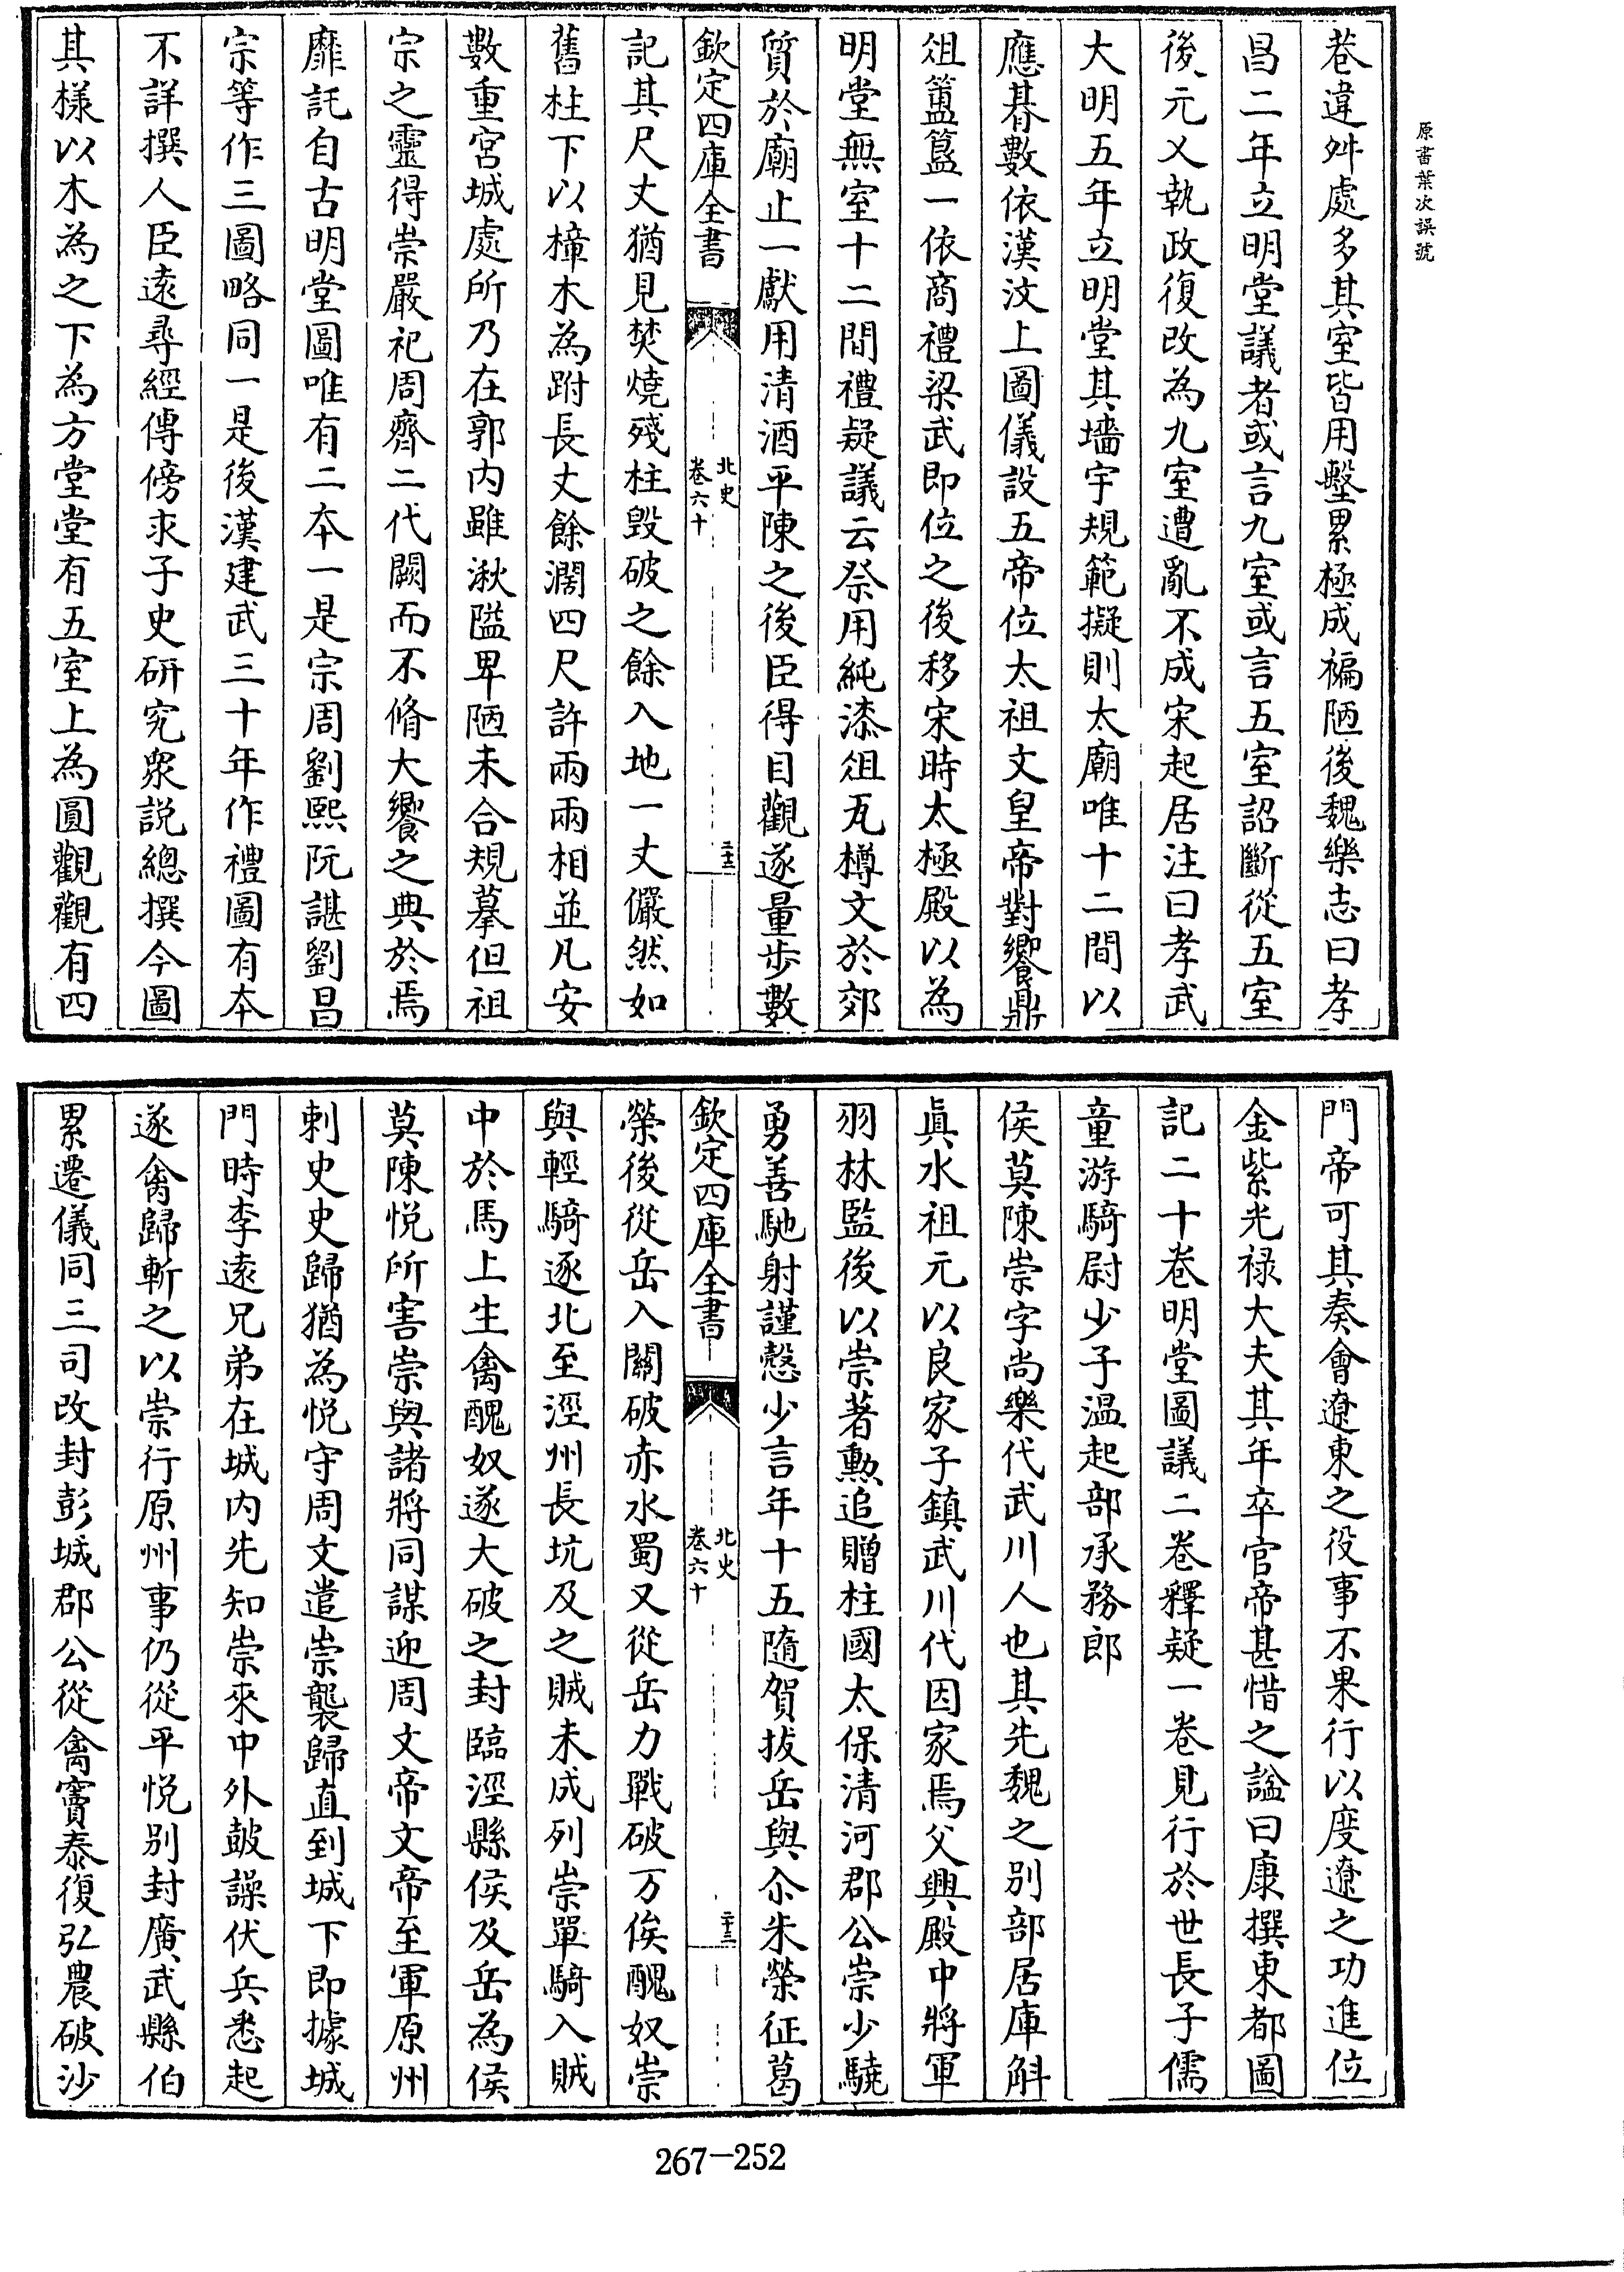 原書葉次誤號
巷違舛處多其室皆用墼累極成褊陋後魏樂志曰孝
昌二年立明堂議者或言九室或言五室詔斷從五室
後元乂執政復改為九室遭亂不成宋起居注曰孝武
大明五年立明堂其墻宇規範擬則太廟唯十二間以
應朞數依漢汶上圖儀設五帝位太祖文皇帝對饗鼎
俎簠簋一依商禮梁武即位之後移宋時太極殿以為
明堂無室十二間禮疑議云祭用純漆俎瓦樽文於郊
質於廟止一獻用清酒平陳之後臣得目觀遂量步數
欽定四庫全書
北史
卷六十
二十三
記其尺丈猶見焚燒殘柱毀破之餘入地一丈儼然如
舊柱下以樟木為跗長丈餘濶四尺許兩兩相並凡安
數重宮城處所乃在郭内雖湫隘卑陋未合規摹但祖
宗之靈得崇嚴祀周齊二代闕而不脩大饗之典於焉
靡託自古明堂圖唯有二本一是宗周劉熙阮諶劉昌
宗等作三圖略同一是後漢建武三十年作禮圖有本
不詳撰人臣遠尋經傳傍求子史研究衆説總撰今圖
其樣以木為之下為方堂堂有五室上為圓觀觀有四
門帝可其奏會遼東之役事不果行以度遼之功進位
金紫光禄大夫其年卒官帝甚惜之諡曰康撰東都圖
記二十卷明堂圖議二卷釋疑一卷見行於世長子儒
童游騎尉少子温起部承務郎
侯莫陳崇字尚樂代武川人也其先魏之别部居庫斛
眞水祖元以良家子鎮武川代因家焉父興殿中將軍
羽林監後以崇著勲追贈柱國太保清河郡公崇少驍
勇善馳射謹慤少言年十五隨賀拔岳與尒朱榮征葛
欽定四庫全書
北史
卷六十
二十三
榮後從岳入關破赤水蜀又從岳力戰破万俟醜奴崇
與輕騎逐北至涇州長坑及之賊未成列崇單騎入賊
中於馬上生禽醜奴遂大破之封臨涇縣侯及岳為侯
莫陳悦所害崇與諸將同謀迎周文帝文帝至軍原州
刺史史歸猶為悦守周文遣崇襲歸直到城下即據城
門時李遠兄弟在城内先知崇來中外鼓譟伏兵悉起
遂禽歸斬之以崇行原州事仍從平悦别封廣武縣伯
累遷儀同三司改封彭城郡公從禽竇泰復弘農破沙
267-252